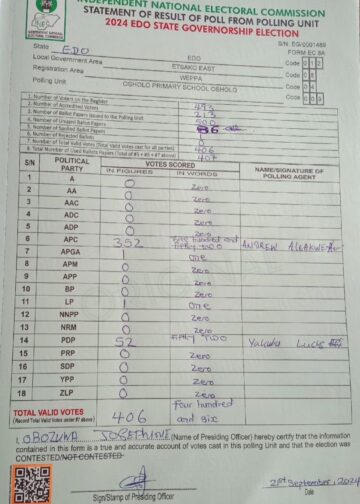 INDEPENDENT NATIONAL ELECTORAL COMMISSION
STATEMENT OF RESULT OF POLL FROM POLLING UNIT
2024 EDO STATE GOVERNORSHIP ELECTION
S/N: EG/0001489
FORM EC 8A
State EDO
EDO Code 012
Local Government Area ETSAKO EAST Code
Registration Area WEPPA Code
Polling Unit OSHOLO PRIMARY SCHOOL OSHOLO Code
1. Number of Voters on the Register 493
2. Number of Accredited Voters
3. Number of Ballot Papers Issued to the Polling Unit 500
4. Number of Unused Ballot Papers
5. Number of Spoiled Ballot Papers
6. Number of Rejected Ballots
7. Number of Total Valid Votes (Total Valid Votes cast for all parties) 406
8. Total Number of Used Ballots Papers (Total of #5 + #6 + #7 above) 407
S/N POLITICAL PARTY VOTES SCORED NAME/SIGNATURE OF POLLING AGENT
IN FIGURES IN WORDS
1 A 0 Zero
2 AA 0 Zero
3 AAC 0 Zero
4 ADC 0 Zero
5 ADP 0 Zero
6 APC 352 hundred and fifty two ANDREW
7 APGA 1 one
8 APM 0 Zero
9 APP 0 Zero
10 BP 0 Zero
11 LP 1 one
12 NNPP 0 Zero
13 NRM 0 Zero
14 PDP 52 fifty two Lucky
15 PRP 0 Zero
16 SDP 0 Zero
17 YPP 0 Zero
18 ZLP 0 Zero
TOTAL VALID VOTES 406 four hundred and six
(Record Total Valid Votes under #7 above)
I, OBOZUWA JOSEPHINE (Name of Presiding Officer) hereby certify that the information
contained in this form is a true and accurate account of votes cast in this polling Unit and that the election was
CONTESTED/NOT CONTESTED
21st September, 2024
Sign/Stamp of Presiding Officer